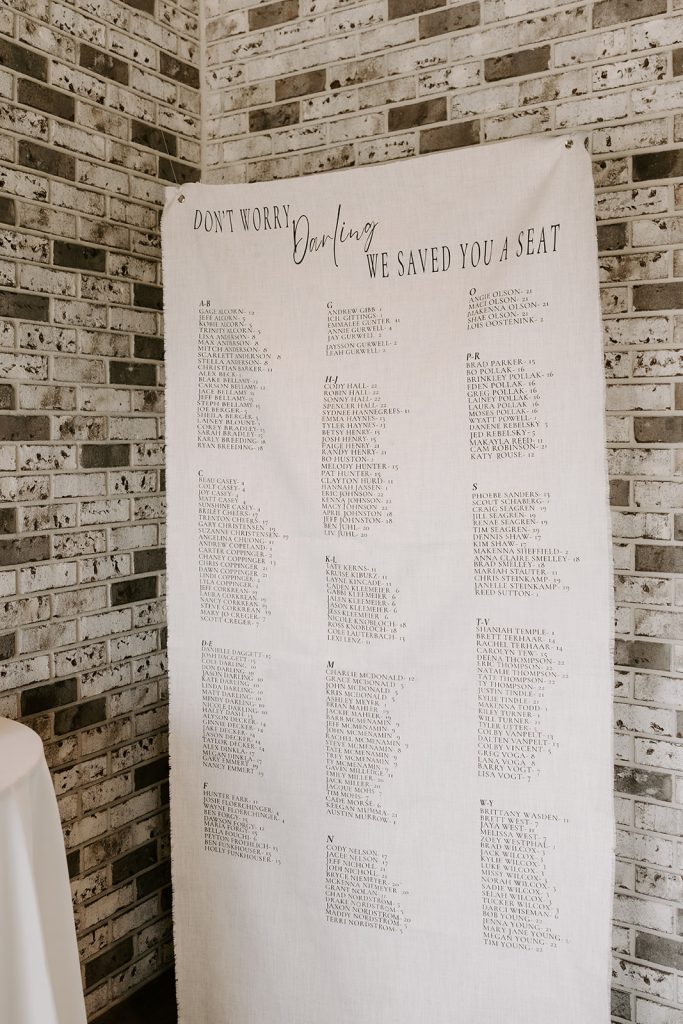 DON'T WORRY
Darling
WE SAVED YOU A SEAT
A-B
GAGE ALCORN- 12
JEFF ALCORN- 5
KOBIE ALCORN- 5
TRINITY ALCORN- 5
LISA ANDERSON- 8
MAX ANDERSON- 8
MITCH ANDERSON- 8
SCARLETT ANDERSON- 8
STELLA ANDERSON- 8
CHRISTIAN BARKER- 11
ALEX BECK- 1
BLAKE BELLAMY- 12
CARSON BELLAMY- 12
JACE BELLAMY- 15
JEFF BELLAMY- 15
STEPPI BELLAMY- 15
JOE BERGER- 7
SHEILA BERGER-
LAINEY BLOUNT-
COREY BRADLEY-
SARAH BRADLEY- 15
KARLY BREEDING- 18
RYAN BREEDING- 18
C
BEAU CASEY- 4
COLT CASEY- 4
JOY CASEY- 4
MATT CASEY- 4
SUNSHINE CASEY- 4
BRILEY CHEERS- 17
TRENTON CHEERS- 17
GARY CHRISTENSEN- 19
SUZANNE CHRISTENSEN- 19
ANGELINA CHOUNG- 1
ANDREW COPELAND- 2
CARTER COPPINGER- 13
CASEY COPPINGER- 13
CHRIS COPPINGER- 13
DAWN COPPINGER-
LINDI COPPINGER-
LILA COPPINGER-
JEFF CORKREAN- 19
LAURA CORKREAN- 19
NANCY CORKREAN- 19
STEVE CORKREAN- 19
MARY JO CREGER- 7
SCOTT CREGER- 7
D-E
DANIELLE DAGGETT- 15
JOSH DAGGETT- 15
COLE DARLING-
DON DARLING-
JASON DARLING- 10
KATE DARLING- 10
LINDA DARLING-
MATT DARLING-
MINDY DARLING-
NICOLE DARLING-
HALEY DASH-
ALYSON DECKER- 14
GINNY DECKER- 14
JAKE DECKER- 14
JASON DECKER- 14
TATUM DECKER- 14
ALEX DINKLA-
MEGAN DINKLA- 17
GARY EMMERT- 19
NANCY EMMERT- 19
F
HUNTER FARR- 11
JOSIE FLOERCHINGER-
WAYNE FLOERCHINGER- 4
BEN FORGY- 12
DAWSON FORGY- 12
MARIA FORGY-
BELLA FOUCHI- 6
PEYTON FROEHLICH- 13
BEN FUNKHOUSER- 13
HOLLY FUNKHOUSER- 13
G
ANDREW GIBB- 1
ICIL GITTINGS- 1
EMMALEE GUNTER- 11
ANNIE GURWELL- 4
JAY GURWELL- 2
JAYSSON GURWELL- 2
LEAH GURWELL- 2
H-J
CODY HALL- 22
ROBIN HALL- 22
SONNY HALL- 22
SPENCER HALL- 22
SYDNEE HANNEGREFS- 11
EMMA HAYNES- 23
TYLER HAYNES- 23
BETSY HENRY- 15
JOSH HENRY- 15
PAIGE HENRY- 21
RANDY HENRY- 21
BO HUSTON- 2
MELODY HUNTER- 15
PAT HUNTER- 15
CLAYTON HURD- 1
HANNAH JANSSEN- 1
ERIC JOHNSON- 22
KENNA JOHNSON- 2
MACY JOHNSON- 22
APRIL JOHNSTON- 18
JEFF JOHNSTON- 18
BEN JUHL- 20
LIV JUHL- 20
K-L
TATE KERNS- 11
KRUISE KIBURZ- 11
LAYNE KINCADE- 11
CADEN KLEEMEIER- 6
GABBI KLEEMEIER- 6
JAEN KLEEMEIER- 6
JASON KLEEMEIER- 6
JESS KLEEMEIER- 6
NICOLE KNOBLOCH- 18
ROSS KNOBLOCH- 18
COLE LAUTERBACH- 13
LEXI LENZ- 11
M
CHARLIE MCDONALD- 12
GRACE MCDONALD- 3
JOHN MCDONALD- 3
KRIS MCDONALD- 3
ASHLEY MEYER-
BRIAN MAHLER-
JACKIE MAHLER- 19
BARB MCMENAMIN- 9
JEFF MCMENAMIN- 9
JOHN MCMENAMIN- 9
RACHEL MCMENAMIN- 9
STEVE MCMENAMIN- 9
TATE MCMENAMIN- 9
TREY MCMENAMIN- 9
TY MCMENAMIN- 9
GAVIN MILLEDGE- 11
EMILY MILLER- 20
JACK MILLER- 20
JACQUE MOHS- 7
TIM MOHS- 7
CADE MORSE- 6
KEEGAN MUSMA-
AUSTIN MURROW- 1
N
CODY NELSON- 17
JACEE NELSON- 17
JEFF NICHOLL- 21
JODI NICHOLL- 21
BRYCE NIEMEYER- 20
MCKENNA NIEMEYER- 20
GRANT NOLAN-
CODI NORDSTROM- 5
DRAKE NORDSTROM- 5
JAXON NORDSTROM- 5
MADDY NORDSTROM- 20
TERRI NORDSTROM- 5
O
ANGIE OLSON- 21
MACI OLSON- 21
MAKENNA OLSON- 21
SHAE OLSON- 21
LOIS OOSTENINK- 2
P-R
BRAD PARKER- 15
BO POLLAK- 16
BRINKLEY POLLAK- 16
EDEN POLLAK- 16
GREG POLLAK- 16
LAINEY POLLAK- 16
LAURA POLLAK- 16
MOSES POLLAK- 16
WYATT POWELL- 1
DANENE REBELSKY- 5
JED REBELSKY- 5
MAKAYLA REED- 11
CAM ROBINSON- 21
KATY ROUSE- 12
S
PHOEBE SANDERS- 13
SCOUT SCHABERG- 1
CRAIG SEAGREN- 19
JILL SEAGREN- 19
RENAE SEAGREN- 19
TIM SEAGREN- 19
DENNIS SHAW- 17
KIM SHAW- 17
MAKENNA SHEFFIELD- 2
ANNA CLAIRE SMELLEY- 18
BRAD SMELLEY- 18
MARIAH STAUTER- 11
CHRIS STEINKAMP- 19
LANELLE STEINKAMP- 19
REED SUTTON- 1
T-V
SHANIAH TEMPLE- 1
BRETT TERHAAR- 14
RACHEL TERHAAR- 14
CAROLYN TEW- 15
DEENA THOMPSON- 22
ERIC THOMPSON- 22
NATALIE THOMPSON- 22
TATE THOMPSON- 22
TY THOMPSON- 22
JUSTIN TINDLE- 21
KYLIE TINDLE- 21
MAKENNA TODD- 11
RILEY TURNER- 1
WILL TURNER- 11
TYLER UTTER- 1
COLBY VANPELT- 13
DALTEN VANPELT- 13
COLBY VINCENT- 5
GREG VOGA- 8
LANA VOGA- 8
BARRY VOGT- 7
LISA VOGT- 7
W-Y
BRITTANY WASDEN- 11
BRETT WEST- 7
JAYA WEST- 11
MELISSA WEST- 7
ZOEY WESTPHAL- 1
BRAD WILCOX- 3
JACK WILCOX- 3
KYLIE WILCOX- 3
LUKE WILCOX- 3
MISSY WILCOX- 3
NORAH WILCOX- 3
SADIE WILCOX- 3
SELAH WILCOX- 3
TUCKER WILCOX- 3
DARCI WISEMAN- 6
BOB YOUNG- 22
JENNA YOUNG- 21
MARY JANE YOUNG-
MEGAN YOUNG- 22
TIM YOUNG- 22